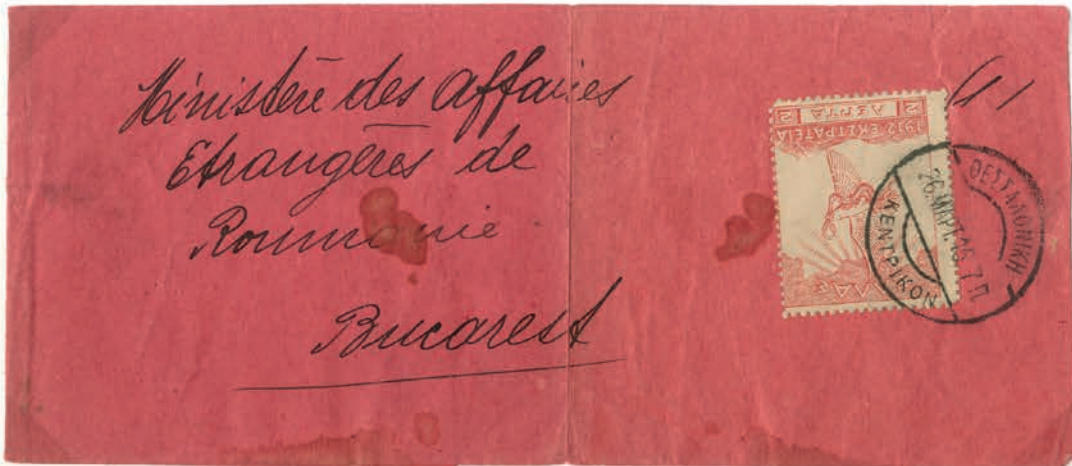 Ministère des Affaires
Etrangères de
Roumanie
Bucarest
2 ΛΕΠΤΑ 2
1912 ΕΚΣΤΡΑΤΕΙΑ
ΘΕΣΣΑΛΟΝΙΚΗ
26 ΜΑΡΤ. 16. 7 Π
ΚΕΝΤΡΙΚΟΝ